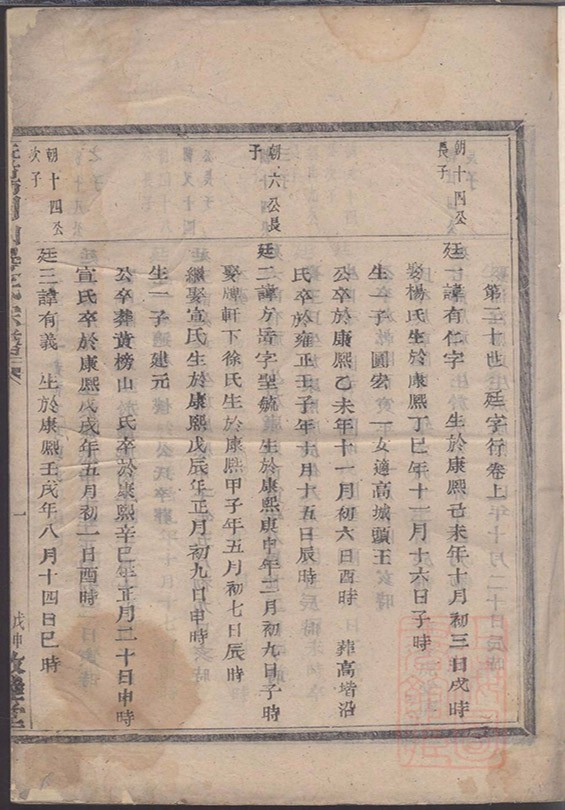 第二十世 廷字行卷上
朝十四公
長子
廷一諱有仁字 生於康熙己未年十月初三日戌時
娶楊氏生於康熙丁巳年十一月十六日子時
生一子 圓宏 一女適高城頭王
公卒於康熙乙未年十一月初六日酉時 葬高堦沿
氏卒於雍正壬子年十月十五日辰時
朝六公長
子
廷二諱方岳字聖毓 生於康熙庚申年二月初九日子時
娶牌軒下徐氏生於康熙甲子年五月初七日辰時
繼娶宣氏生於康熙戊辰年正月初九日申時
生一子 建元
公卒葬黃榜山 氏卒於康熙辛巳年正月二十日申時
宣氏卒於康熙戊戌年五月初一日酉時
朝十四公
次子
廷三諱有義 生於康熙壬戌年八月十四日巳時
宗譜
一
戊申
敦睦堂